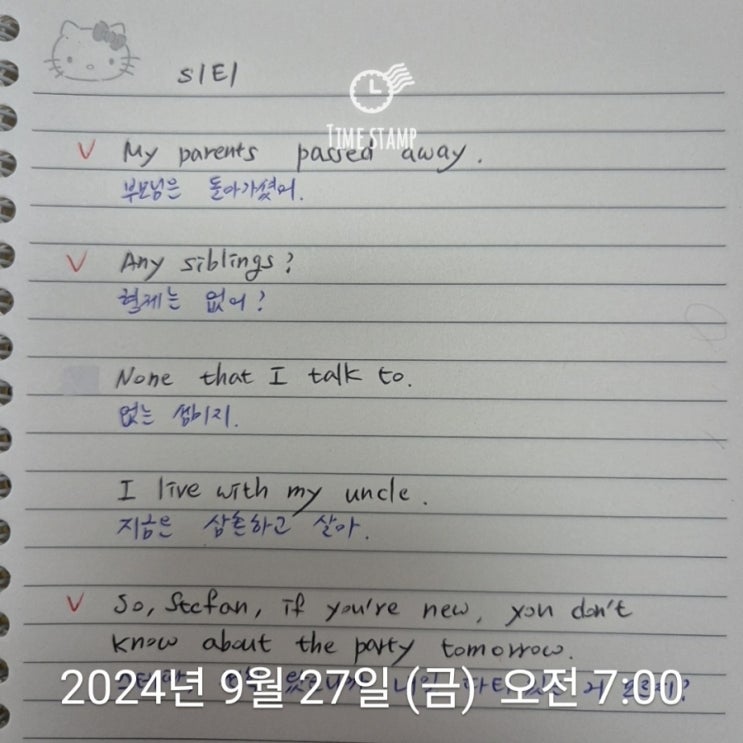 S1E1
TIME STAMP
V My parents passed away.
부모님은 돌아가셨어.
V Any siblings?
형제는 없어?
None that I talk to.
없는 셈이지.
I live with my uncle.
지금은 삼촌하고 살아.
V So, Stefan, if you're new, you don't
know about the party tomorrow.
내일 파티
2024년 9월 27일 (금) 오전 7:00